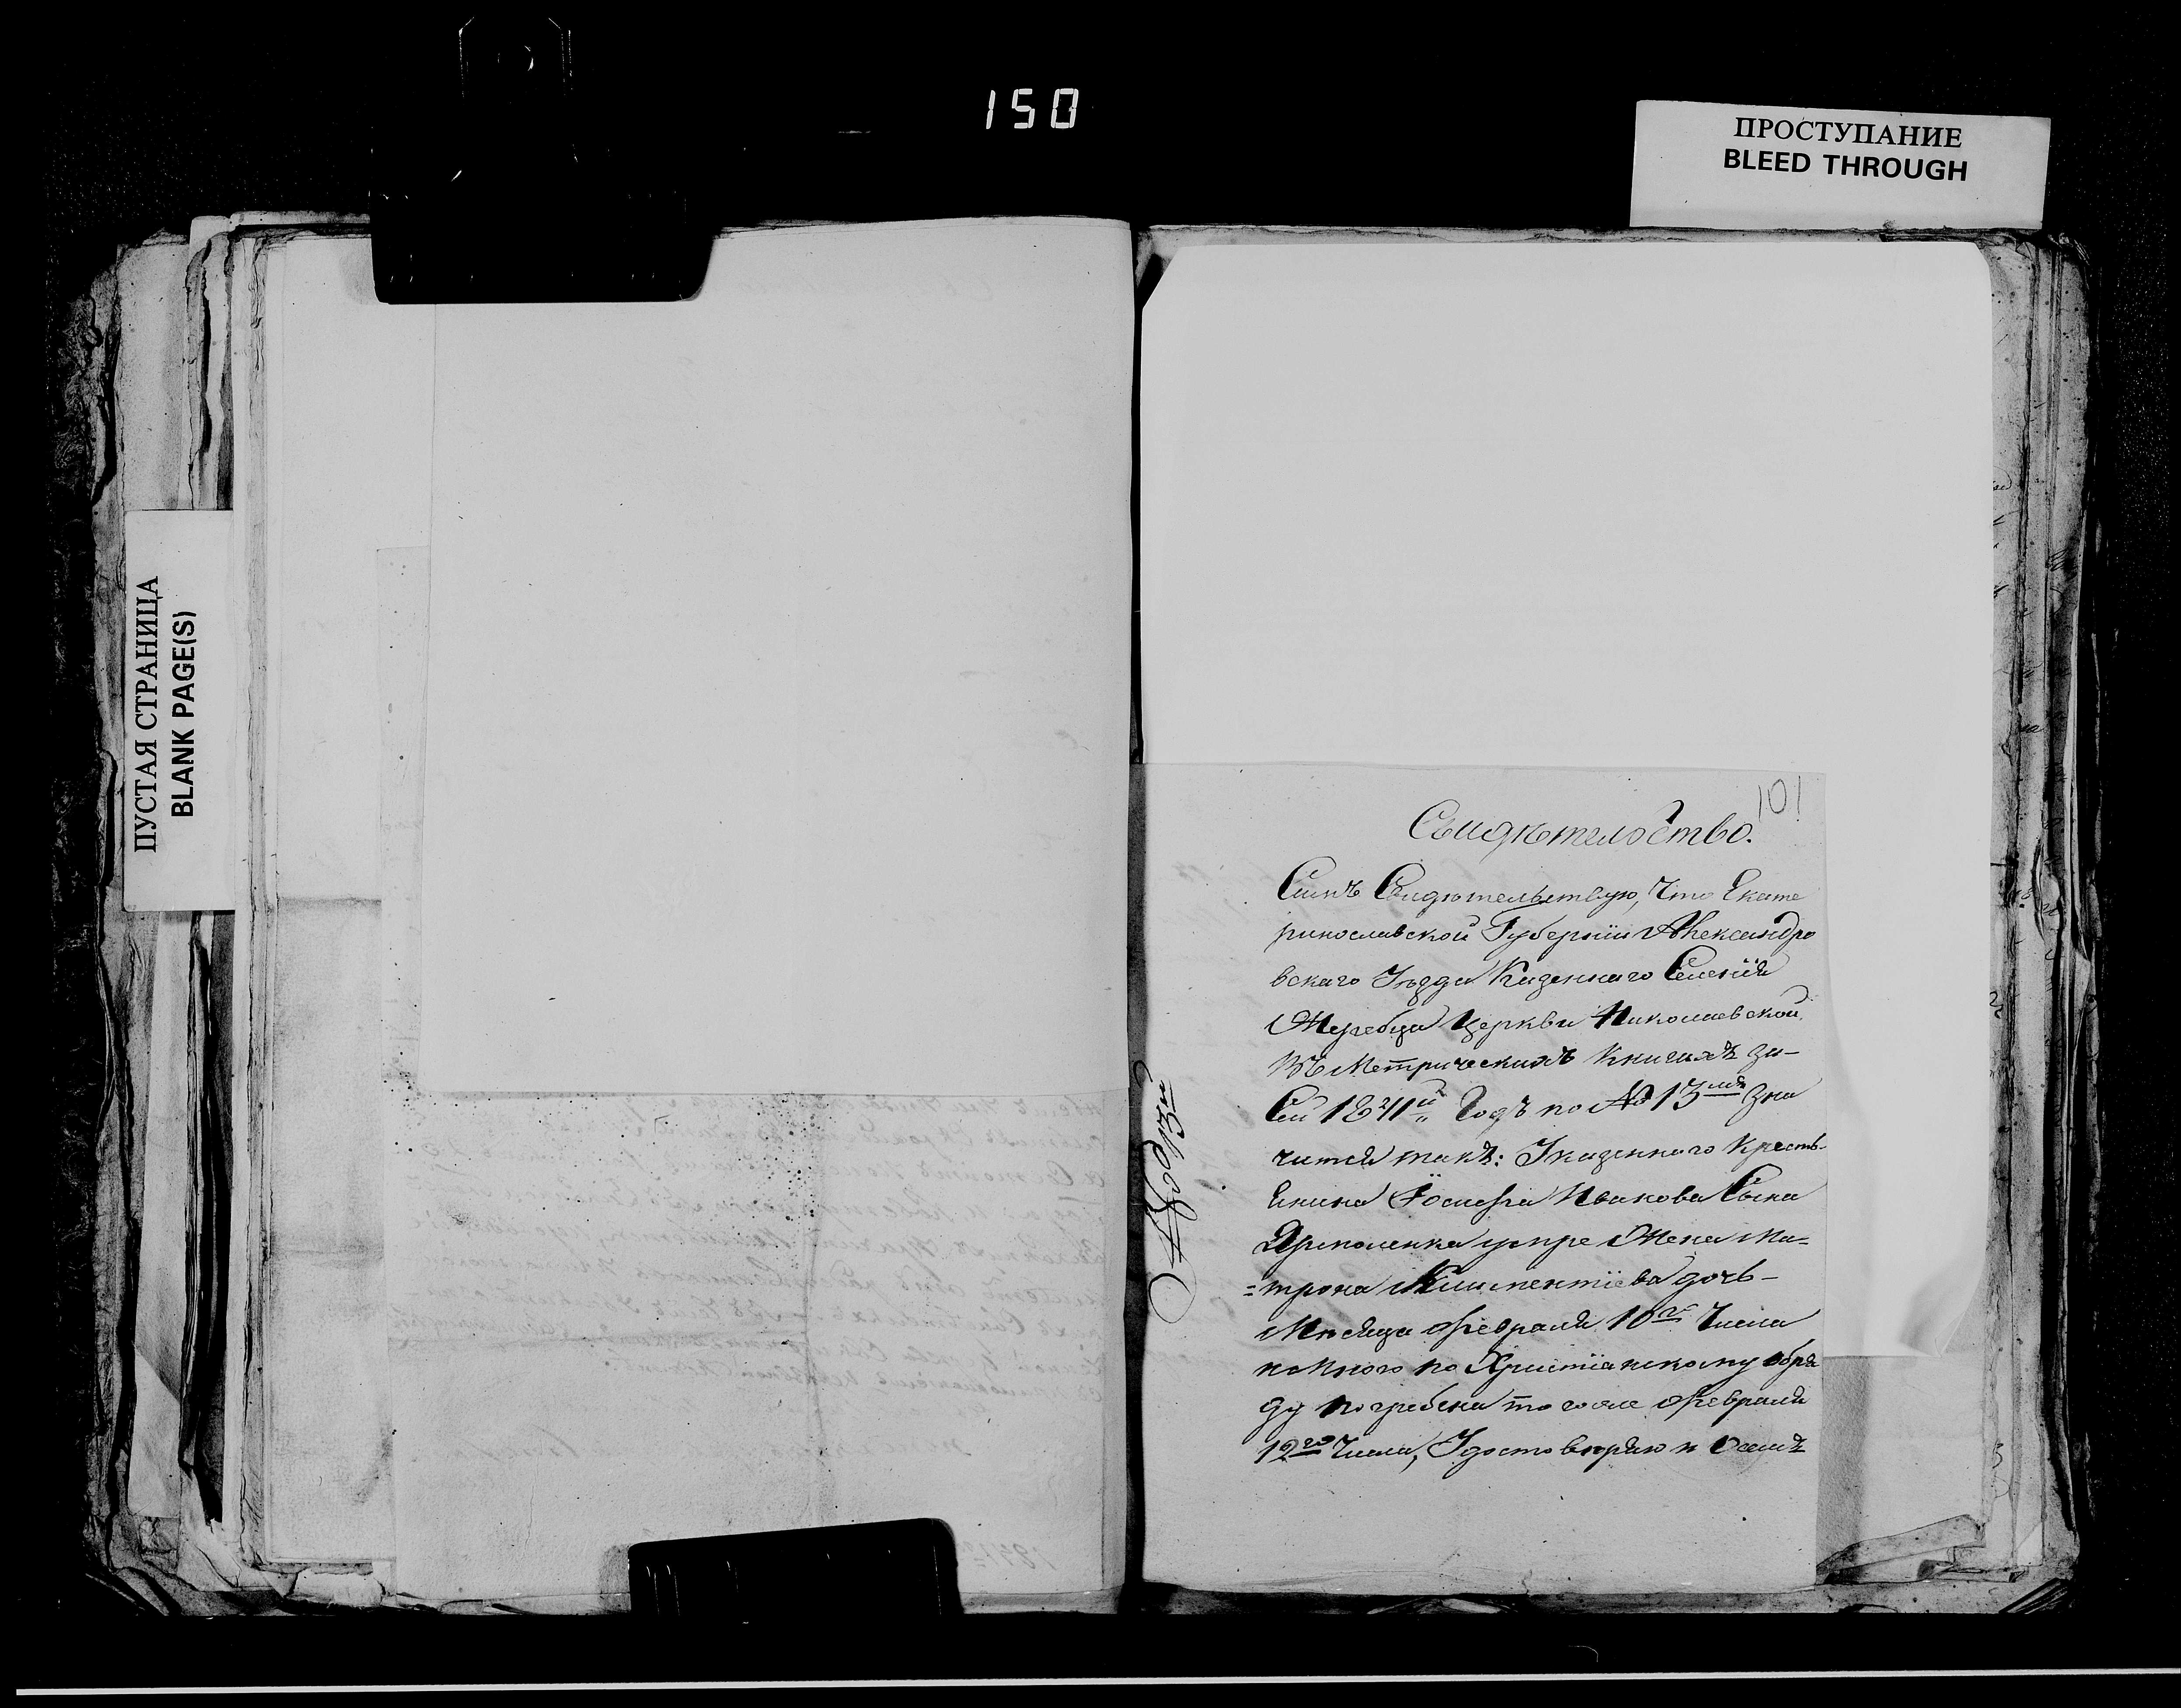 150
ПРОСТУПАНИЕ
BLEED THROUGH
ПУСТАЯ СТРАНИЦА
BLANK PAGE(S)
101
Свидѣтелство.
Симъ Свидѣтельствую, Что Екате
ринославской Губернïи Александро
вскаго Уѣзда Казеннаго Селенïя
Жеребца Церкви Николаевской
Въ Метрическихъ Книгахъ за-
Сей 1841й Годъ по № 13мъ Зна
чится такъ: У казеннаго Кресть-
Енина Иосифа Ивакова Сына
умре Жена Ма=
=трона Климентïева дочь-
Мѣсяца Февраля 10го Числа
по Христïанскому обря
ду погребена того же Февраля
12го Числа, Удостовѣряю и Семъ